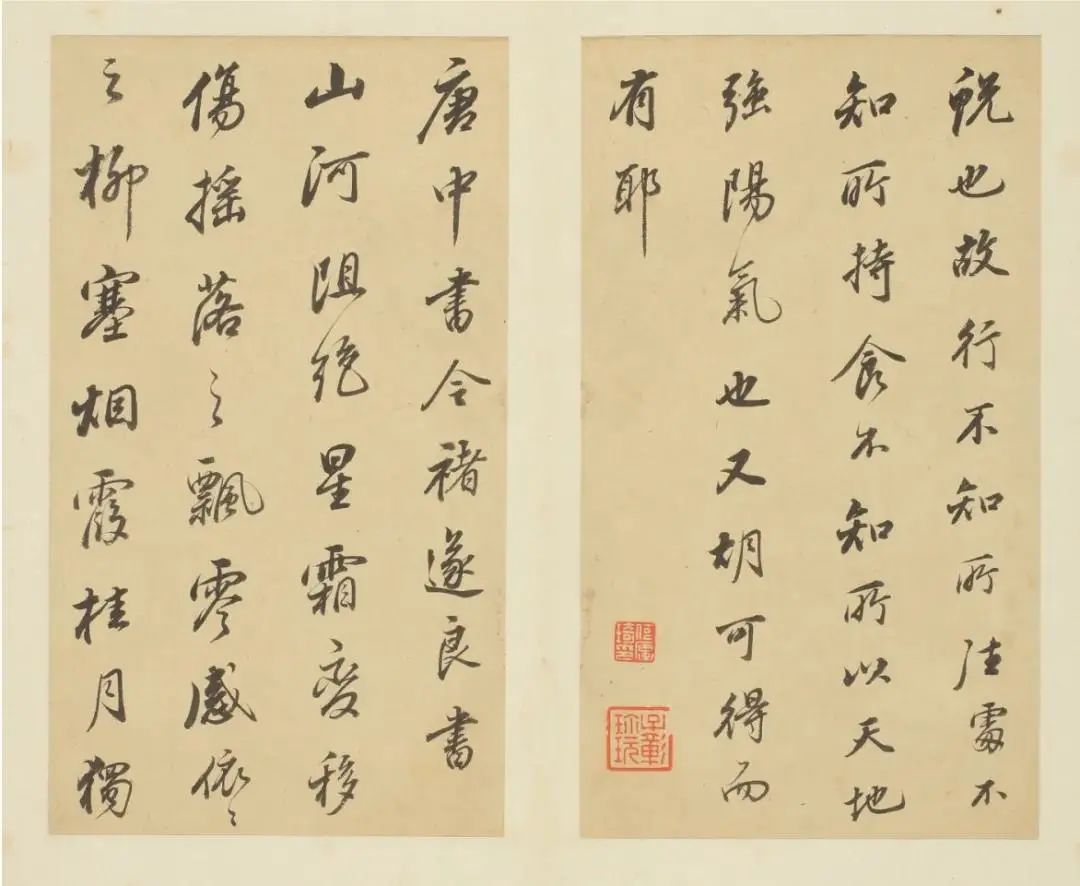 蛻也故行不知所往處不
知所持食不知所以天地
強陽氣也又胡可得而
有耶
子彰珍玩
唐中書令褚遂良書
山河阻絕星霜變移
傷搖落之飄零感依〻
之柳塞烟霞桂月獨